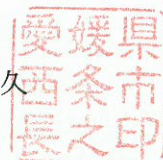 久
愛媛県
西条市
長之印